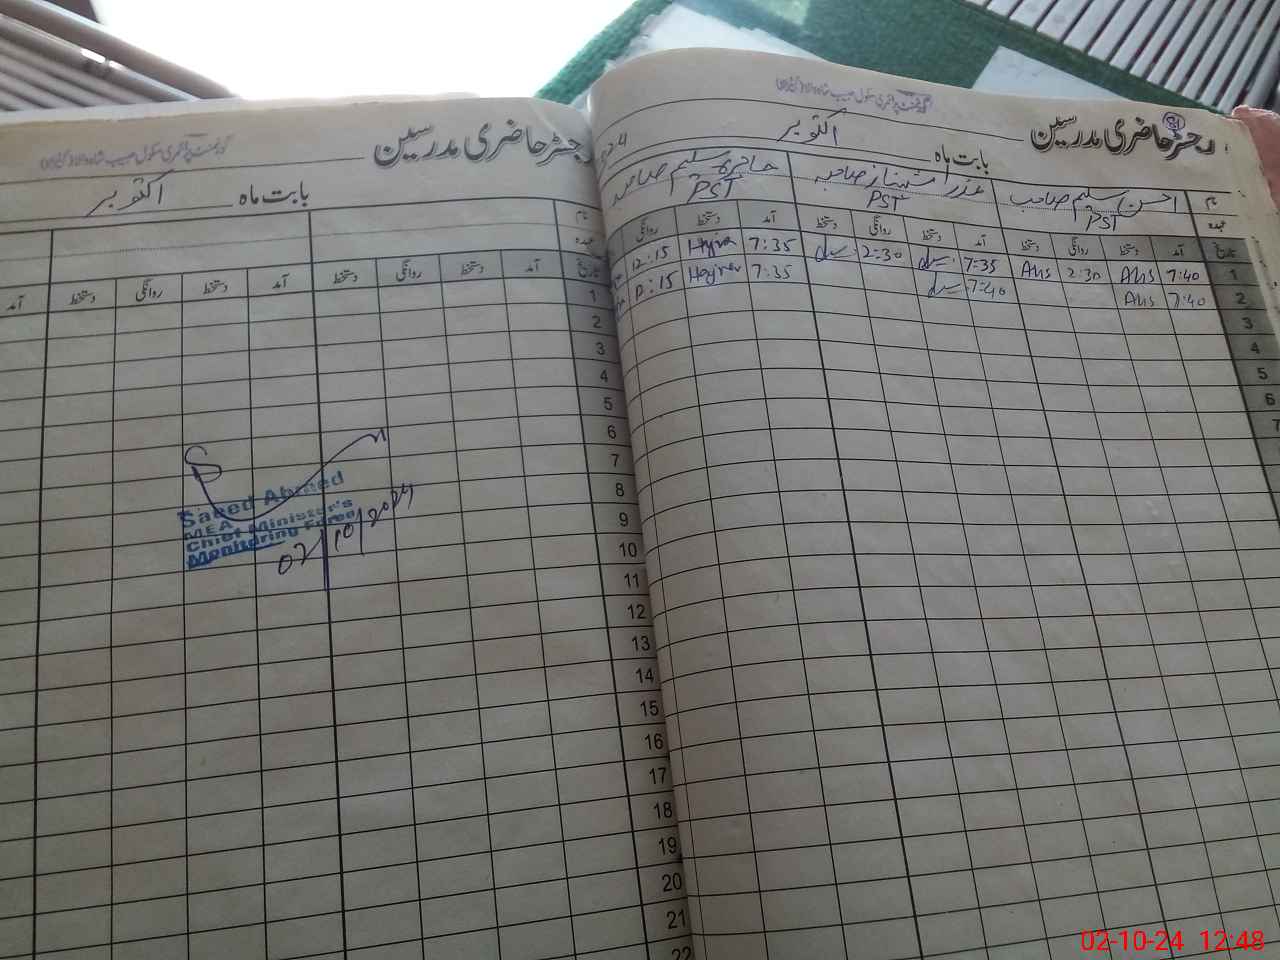 رجسٹر حاضری مدرسین
بابت ماہ اکتوبر
نام
احسن سلیم صاحب
عذرا شہناز صاحبہ
عہدہ
PST
PST
PST
تاریخ آمد دستخط روانگی دستخط آمد دستخط روانگی دستخط آمد دستخط روانگی
1 7:40 Ahs 2:30 Ahs 7:35 2:30 7:35 12:15
2 7:40 Ahs 7:40 7:35
3
4
5
6
7
رجسٹر حاضری مدرسین
بابت ماہ اکتوبر
نام
عہدہ
تاریخ آمد دستخط روانگی دستخط آمد دستخط روانگی دستخط آمد
1
2
3
4
5
6
7
8
9
10
11
12
13
14
15
16
17
18
19
20
21
22
Saeed Ahmed
MEA
Chief Minister's
Monitoring Force
02/10/2024
02-10-24 12:48